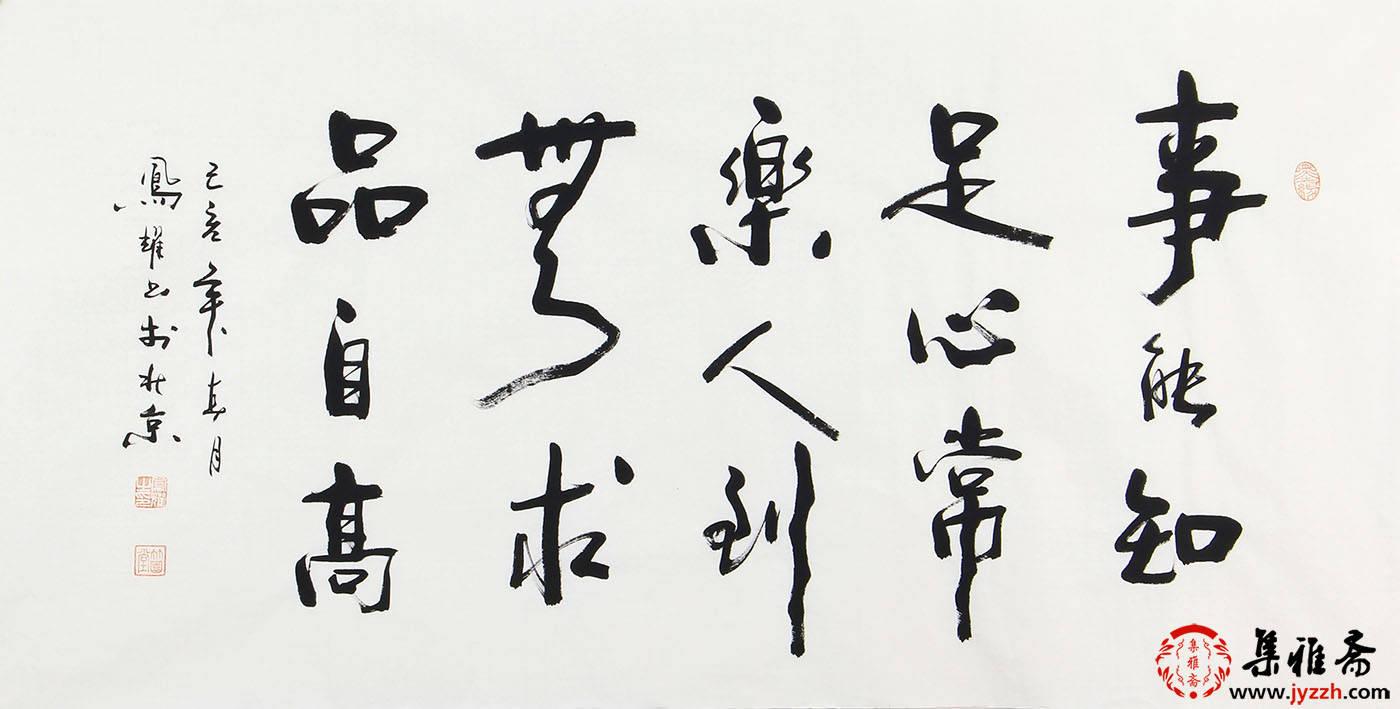 事能知
足心常
樂人到
無求
品自高
己亥年春月
鳳耀书於北京
集雅斋
集雅斋
www.jyzzh.com